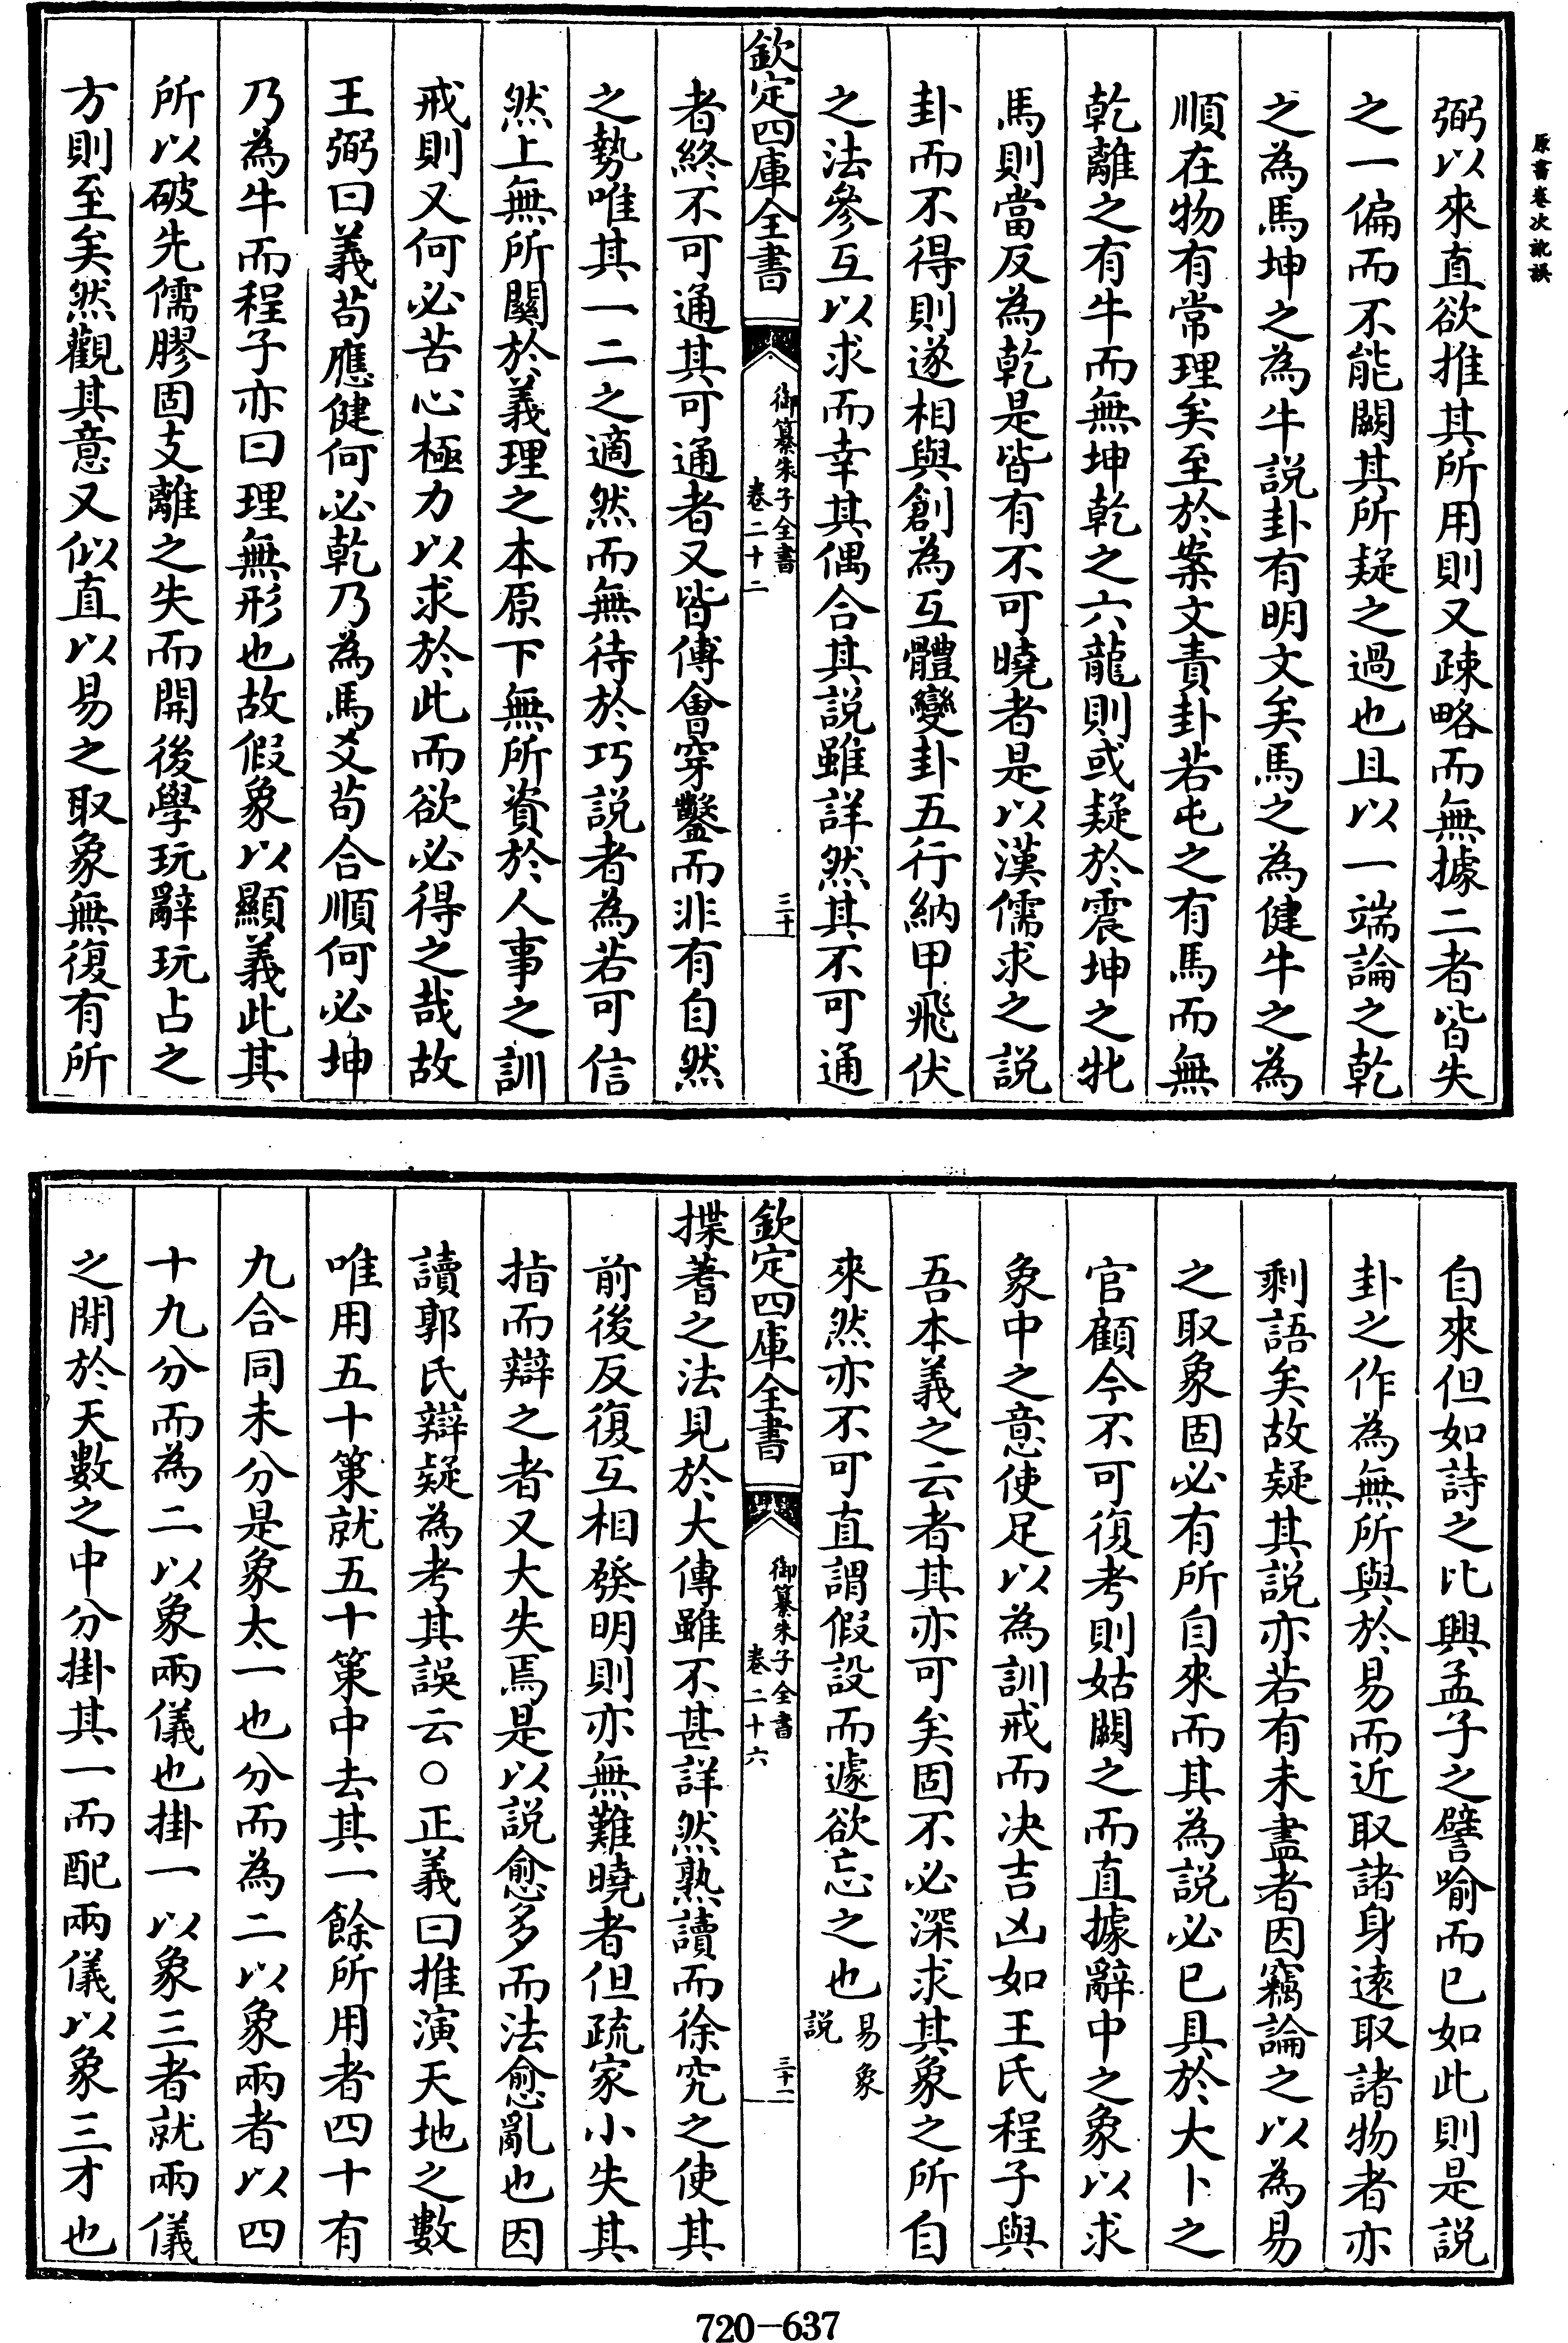 原書卷次訛誤
弼以來直欲推其所用則又疎略而無據二者皆失
之一偏而不能闕其所疑之過也且以一端論之乾
之為馬坤之為牛説卦有明文矣馬之為健牛之為
順在物有常理矣至於案文責卦若屯之有馬而無
乾離之有牛而無坤乾之六龍則或疑於震坤之牝
馬則當反為乾是皆有不可曉者是以漢儒求之説
卦而不得則遂相與創為互體變卦五行納甲飛伏
之法參互以求而幸其偶合其説雖詳然其不可通
欽定四庫全書
御纂朱子全書
卷二十二
三十
者終不可通其可通者又皆傅會穿鑿而非有自然
之勢唯其一二之適然而無待於巧説者為若可信
然上無所關於義理之本原下無所資於人事之訓
戒則又何必苦心極力以求於此而欲必得之哉故
王弼曰義苟應健何必乾乃為馬爻苟合順何必坤
乃為牛而程子亦曰理無形也故假象以顯義此其
所以破先儒膠固支離之失而開後學玩辭玩占之
方則至矣然觀其意又似直以易之取象無復有所
自來但如詩之比興孟子之譬喻而已如此則是説
卦之作為無所與於易而近取諸身遠取諸物者亦
剩語矣故疑其説亦若有未盡者因竊論之以為易
之取象固必有所自來而其為説必已具於大卜之
官顧今不可復考則姑闕之而直據辭中之象以求
象中之意使足以為訓戒而决吉凶如王氏程子與
吾本義之云者其亦可矣固不必深求其象之所自
來然亦不可直謂假設而遽欲忘之也易象説
欽定四庫全書
御纂朱子全書
卷二十六
三十一
揲蓍之法見於大傳雖不甚詳然熟讀而徐究之使其
前後反復互相發明則亦無難曉者但疏家小失其
指而辯之者又大失焉是以説愈多而法愈亂也因
讀郭氏辯疑為考其誤云○正義曰推演天地之數
唯用五十策就五十策中去其一餘所用者四十有
九合同未分是象太一也分而為二以象兩者以四
十九分而為二以象兩儀也掛一以象三者就兩儀
之間於天數之中分掛其一而配兩儀以象三才也
720-637